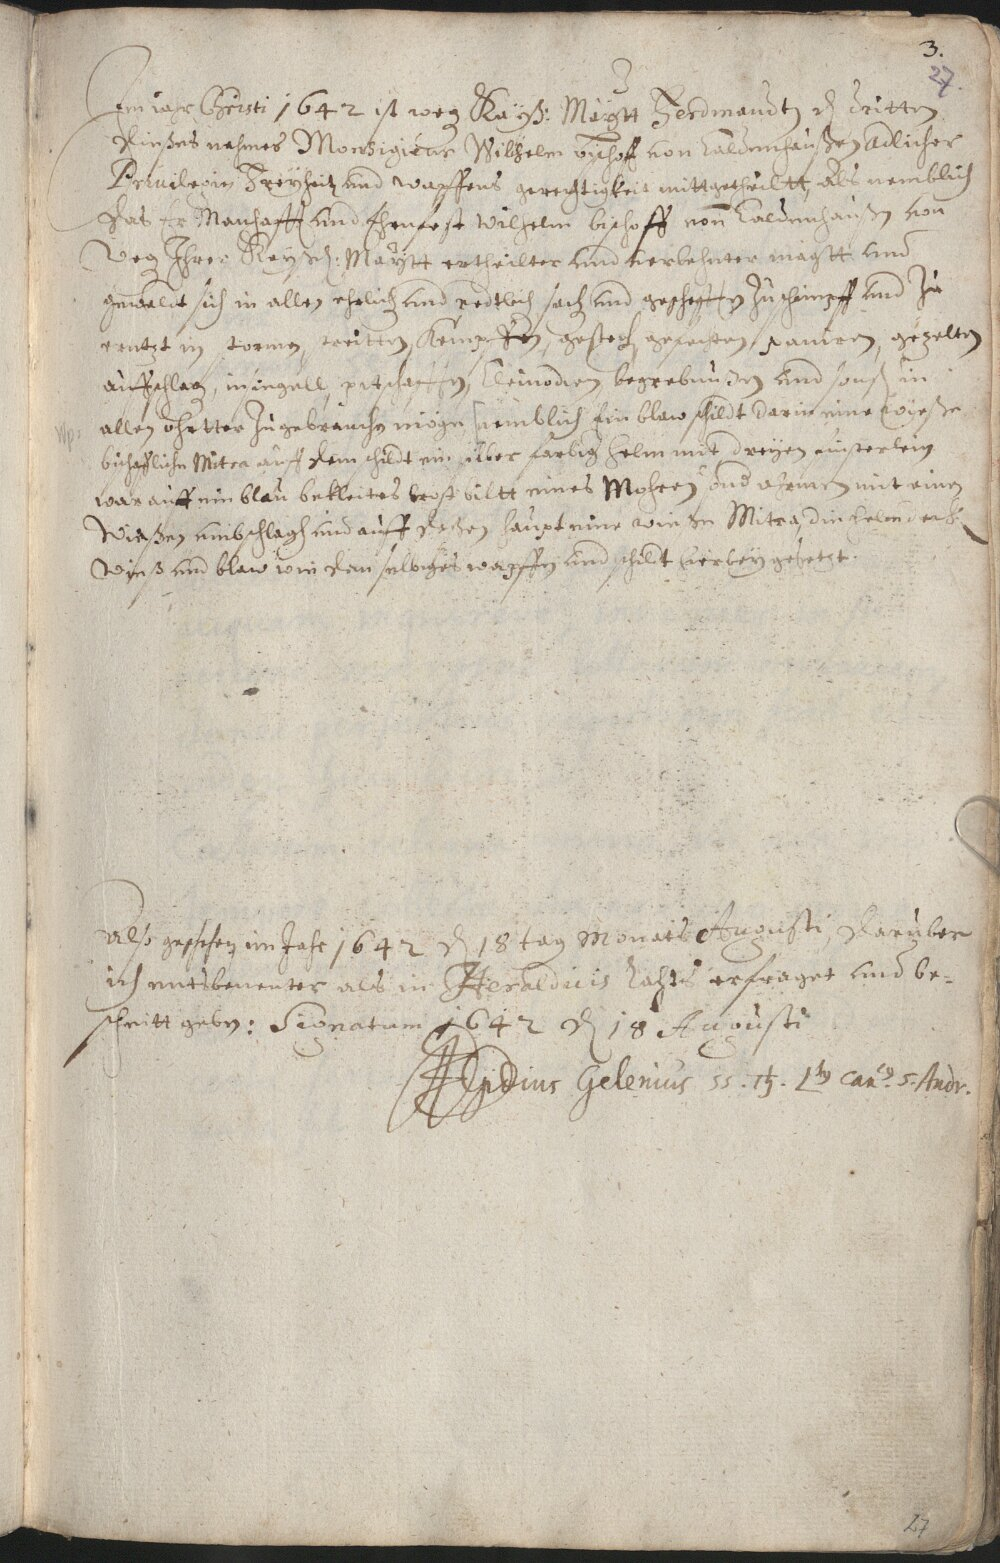 3.
27.
Im jahr Christi 1642 ist weg Kayß: Maÿtt Ferdinandt d dritten
dießes nahmes Wilhelm Bischoff von Caldenhaußen Adlicher
Priuilegien Freyheit und wapffens gerechtigkeit mittgetheiltt, Als nemblich
das Er Manhafft und Ehrnfest Wilhelm bischoff vonn Caldenhaußen von
weg Ihrer Kayß: Maÿtt ertheilter und macht und
gewaldt sich in allen ehrlich und redtlich sach und zu schimpff und Zu
ernst in streitten, Kempffen, gestech, gefechten, paniren, gezelten
auffschlag, insigell, pitschafften, Cleinodien begrebnußen und sonst in
allen öhrtter Zugebrauchen mögen nemblich Ein blaw schildt darin eine weiße
bischoffliche Mitra auff dem schildt ein silber farbig helm mit dreyen
warauff ein blau bekleites brost biltt eines Mohren ohne mit einen
Weißen umbschlagh und auff deßen haupt eine weiße Mitra, die helmdeck
weiß und blaw wie dan selbiges wapffen und schildt hierbey gesetzt.
Also geschehen im Jahr 1642 d 18 tag Monats Augusti, darüber
ich undsbenenter als in Heraldicis erfraget und be-
schritt geben: Signatum 1642 d 18 Augusti
Ægidius Gelenius ss. Th. Can. s. Andr.
27